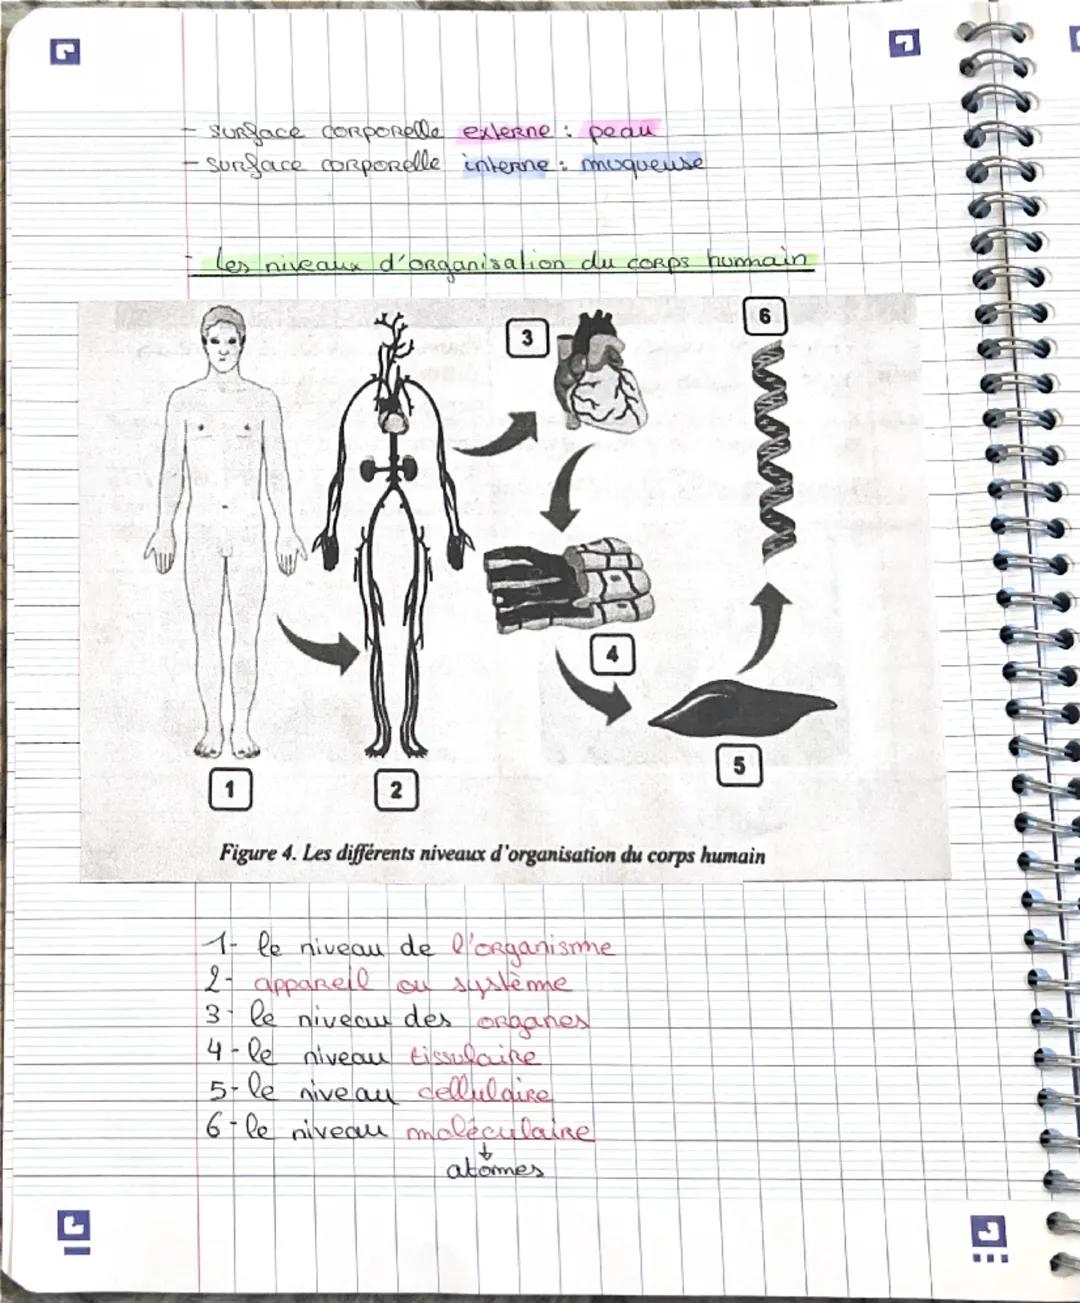 - surface corporelle externe : peau
- surface corporelle interne : muqueuse
- les niveaux d'organisation du corps humain
1
2
3
4
5
6
Figure 4. Les différents niveaux d'organisation du corps humain
1- le niveau de l'organisme
2- appareil ou système
3- le niveau des organes
4- le niveau tissulaire
5- le niveau cellulaire
6- le niveau moléculaire
↓
atomes